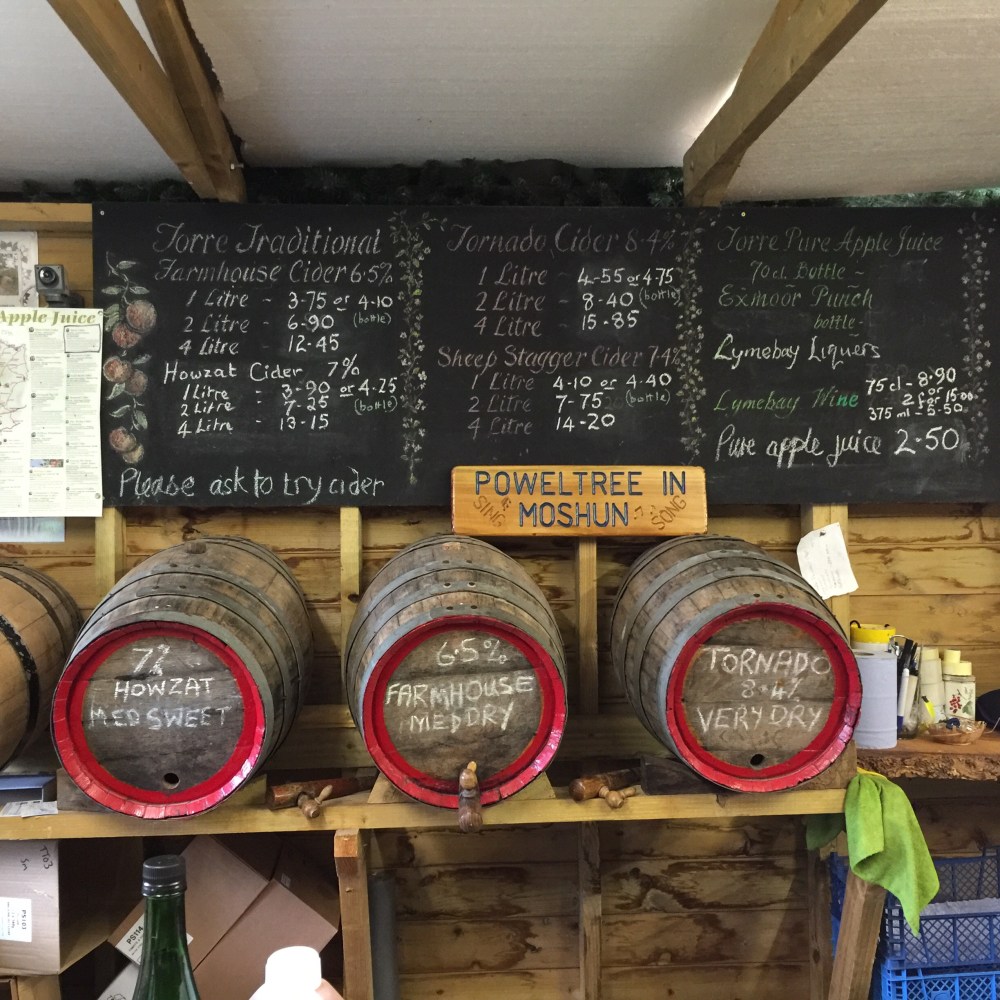 Torre Traditional
Farmhouse Cider 6.5%
1 Litre - 3-75 or 4-10
2 Litre - 6-90 (bottle)
4 Litre - 12-45
Howzat Cider 7%
1 Litre - 3-90 or 4-25
2 Litre - 7-25 (bottle)
4 Litre - 13-15
Please ask to try cider
Tornado Cider 8.4%
1 Litre - 4-55 or 4-75
2 Litre - 8-40 (bottle)
4 Litre - 15-85
Sheep Stagger Cider 7.4%
1 Litre 4-10 or 4-40
2 Litre 7-75 (bottle)
4 Litre 14-20
Torre Pure Apple Juice
70cl Bottle -
Exmoor Punch
bottle -
Lymebay Liquers
Lymebay Wine 75cl - 8-90
2 for 15.00
375 ml - 5-50
Pure apple juice 2-50
Apple Juice
POWELTREE IN
MOSHUN
SING
SONG
7%
HOWZAT
MED SWEET
6.5%
FARMHOUSE
MED DRY
TORNADO
8.4%
VERY DRY
PS103
PS114